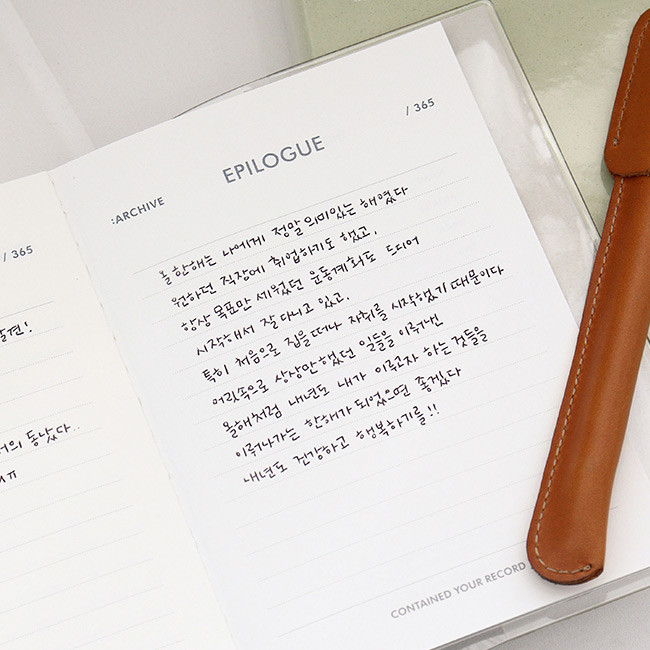 / 365
발견!
거의 동났다..
ㅠ
/ 365
EPILOGUE
:ARCHIVE
올 한해는 나에게 정말 의미있는 해였다
원하던 직장에 취업하기도 했고,
항상 목표만 세웠던 운동계획도 드디어
시작해서 잘 다니고 있고.
특히 처음으로 집을 떠나 자취를 시작했기 때문이다
머릿속으로 상상만 했던 일들을 이뤄낸
올해처럼 내년도 내가 이루고자 하는 것들을
이뤄나가는 한해가 되었으면 좋겠다
내년도 건강하고 행복하기를!!
CONTAINED YOUR RECORD